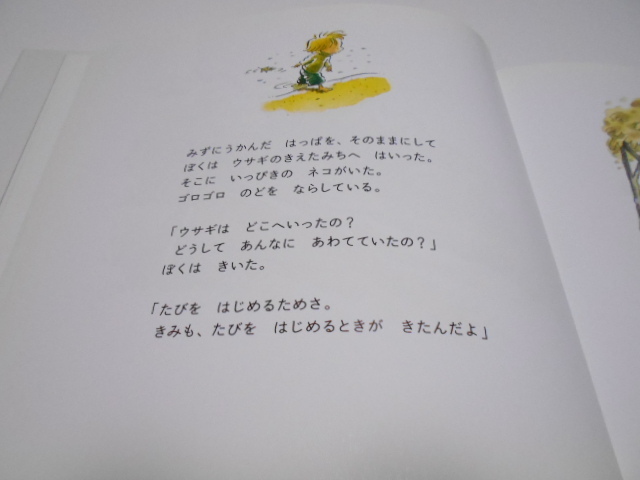 みずにうかんだ　はっぱを、そのままにして
ぼくは　ウサギのきえたみちへ　はいった。
そこに　いっぴきの　ネコがいた。
ゴロゴロ　のどを　ならしている。
「ウサギは　どこへいったの？
どうして　あんなに　あわてていたの？」
ぼくは　きいた。
「たびを　はじめるためさ。
きみも、たびを　はじめるときが　きたんだよ」